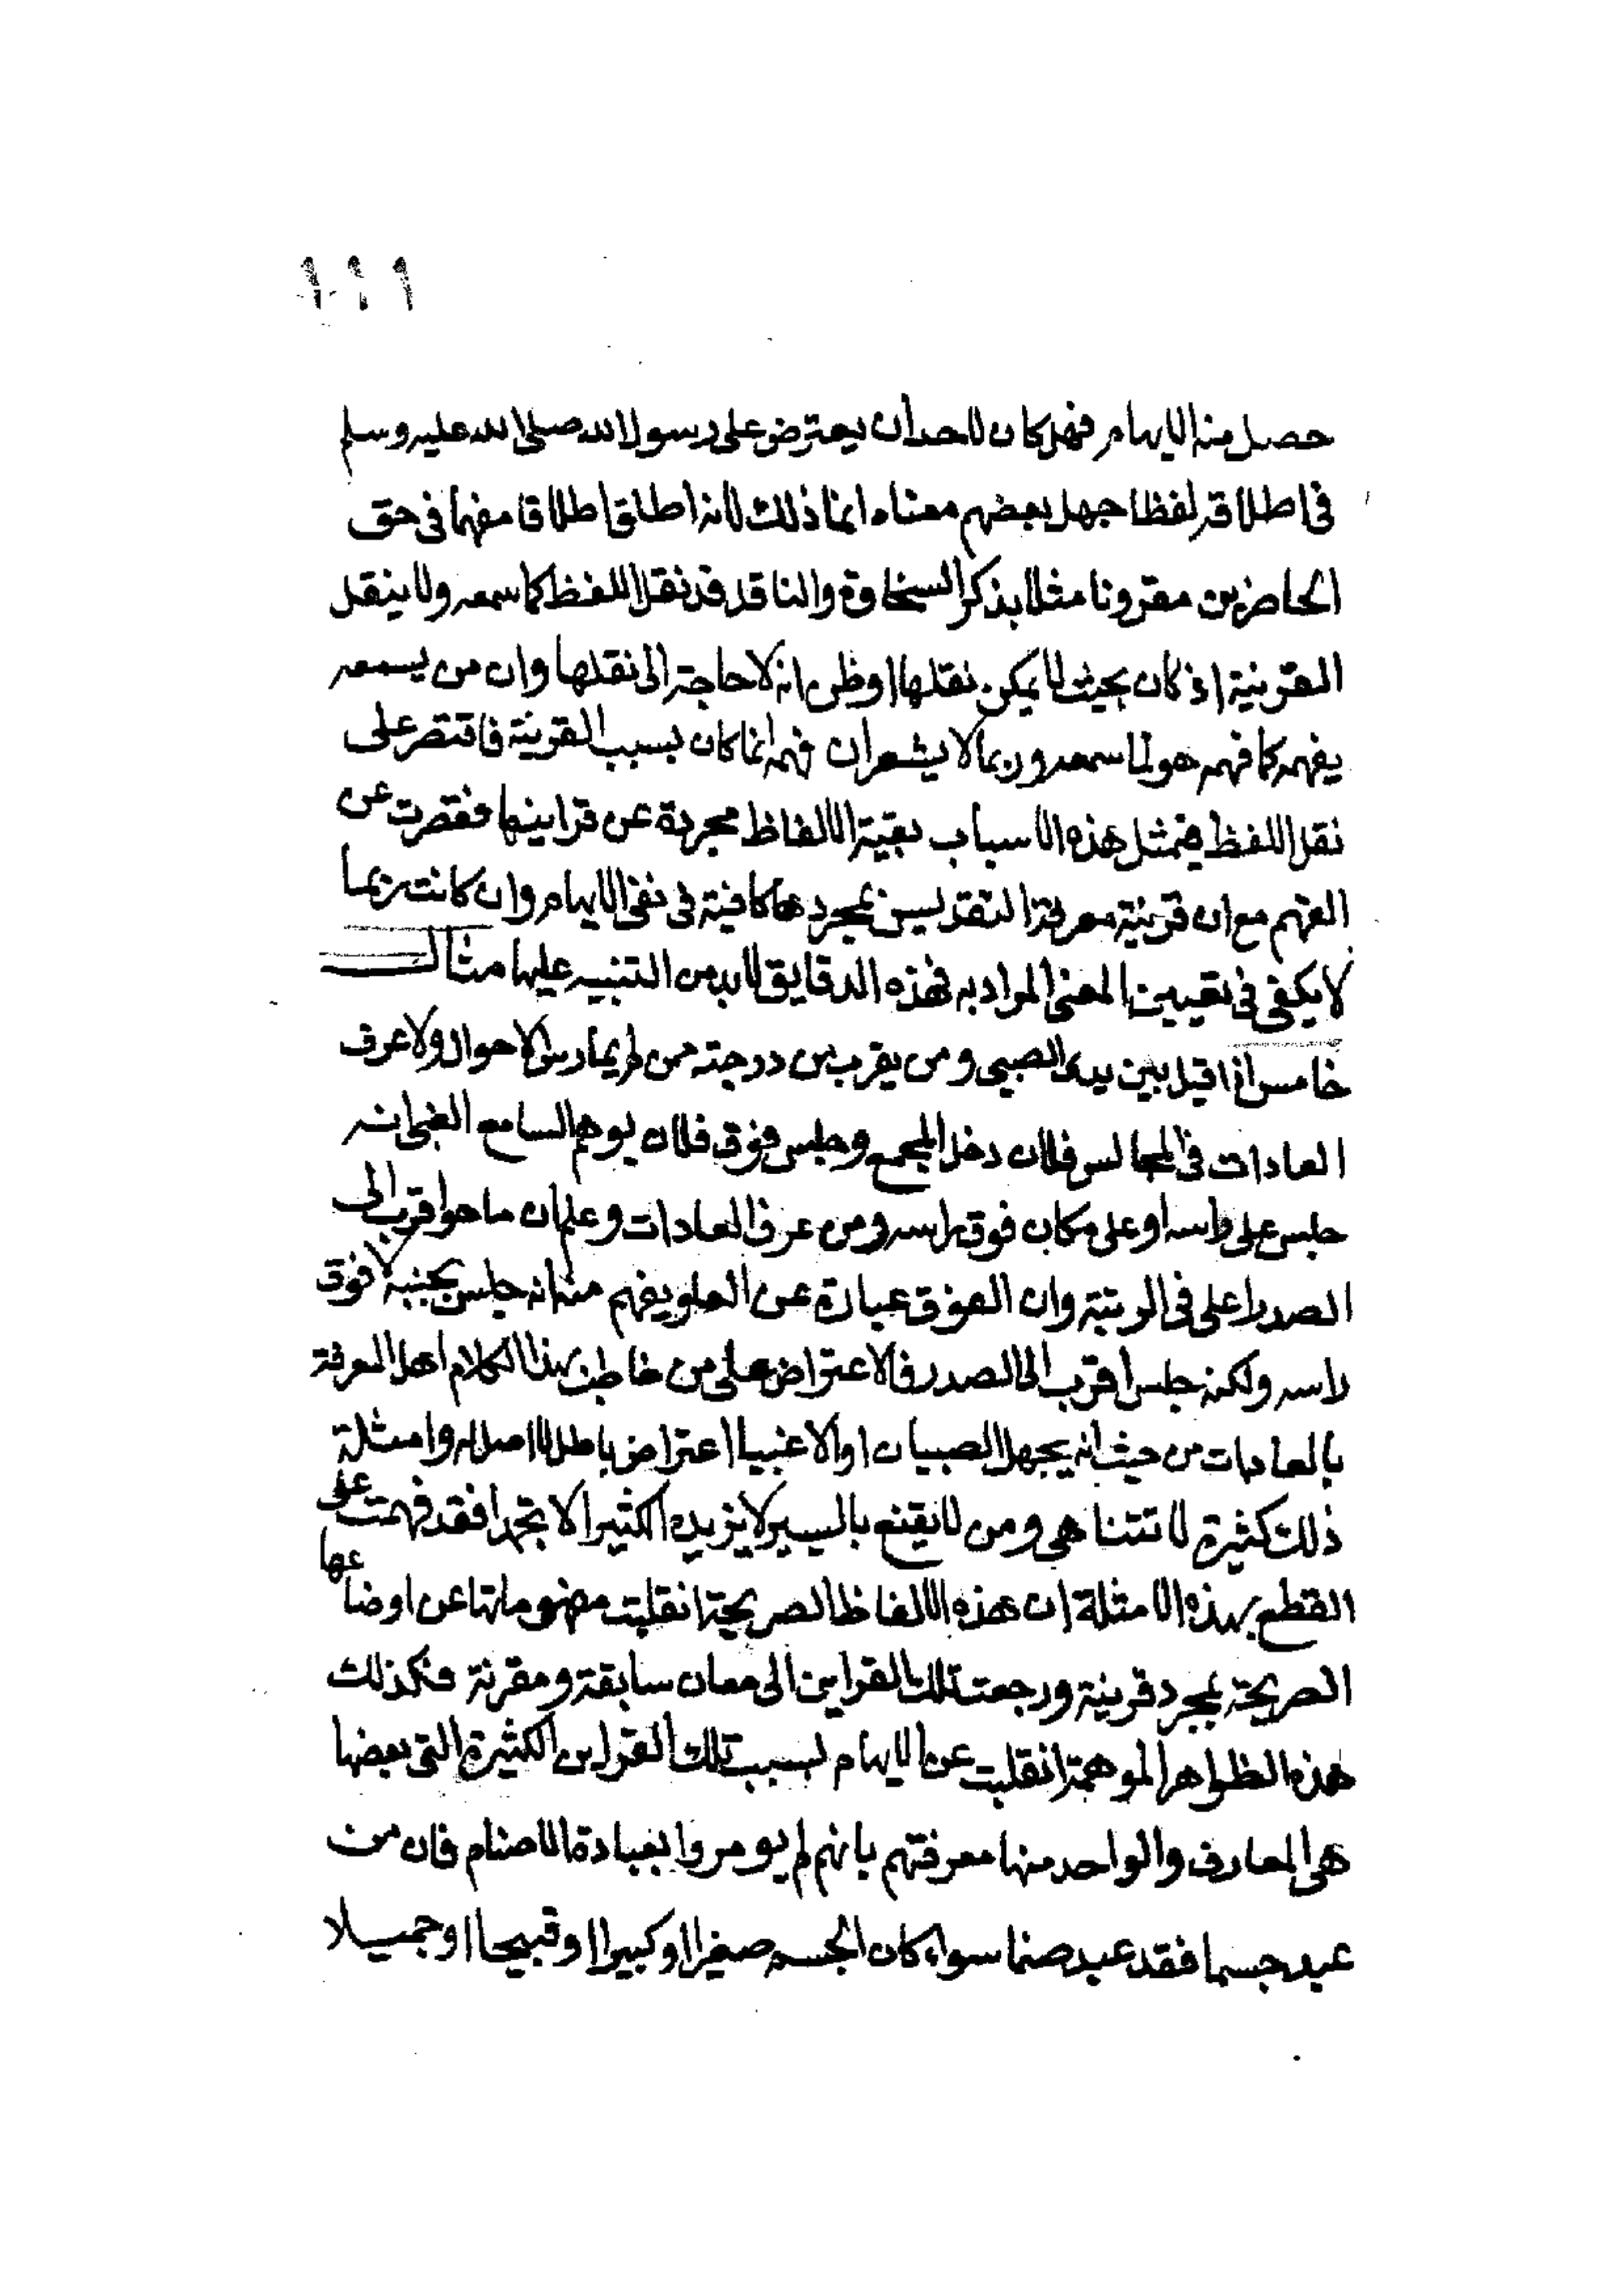 ١١١
حصل منه الايهام فهل كان لاحد ان يعترض على رسول الله صلى الله عليه وسلم
فى اطلاقه لفظا جهل بعضهم معناه انما ذلك لانه اطلق اطلاقا مفهما فى حق
الحاضرين مقرونا مثلا بذكر السخاوة والناقد قد نقل اللفظ كما سمعه ولا ينقل
القرينة اذ كان بحيث لا يمكن نقلها او ظن انه لا حاجة الى نقلها وان من يسمعه
يفهمه كما فهمه هو لما سمعه وربما لا يشعر ان فهمه انما كان بسبب القرينة فاقتصر على
نقل اللفظ فبمثل هذه الاسباب بقية الالفاظ مجردة عن قراينها فقصرت عن
الفهم مع ان قرينة معرفة التقديس بمجردها كافية فى نفى الايهام وان كانت ربما
لا يكفى فى تعيين المعنى المراد به فهذه الدقايق لا بد من التنبيه عليها مثال
خامس اذا قيل بين يدى الصبى ومن يقرب من درجته من لم يمارس الاحوال ولا عرف
العادات فى المجالس فلان دخل المجمع وجلس فوق فلان يوهم السامع الغبى انه
جلس على راسه او على مكان فوق راسه ومن عرف العادات وعلم ان ما هو اقرب الى
الصدر اعلى فى الرتبة وان الفوق عبارة عن العلو يفهم منه انه جلس بجنبه لا فوق
راسه ولكنه جلس اقرب الى الصدر فالاعتراض على من خاطب بهذا الكلام اهل المعرفة
بالعادات من حيث انه يجهل الصبيان او الاغبيا اعتراض باطل لا اصل له وامثلة
ذلك كثيرة لا تتناهى ومن لا يقنع باليسير لا يزيده الكثير الا تحيرا فقد فهمت على
القطع بهذه الامثلة ان هذه الالفاظ الصريحة انقلبت مفهوماتها عن اوضاعها
الصريحة بمجرد قرينة ورجعت تلك القراين الى معان سابقة ومقرنة فكذلك
هذه الظواهر الموهمة انقلبت عن الايهام بسبب تلك القراين الكثيرة التى بعضها
هى المعارف والواحد منها معرفتهم بانهم لم يومروا بعبادة الاصنام فان من
عبد جسما فقد عبد صنما سواء كان الجسم صغيرا او كبيرا او قبيحا او جميلا